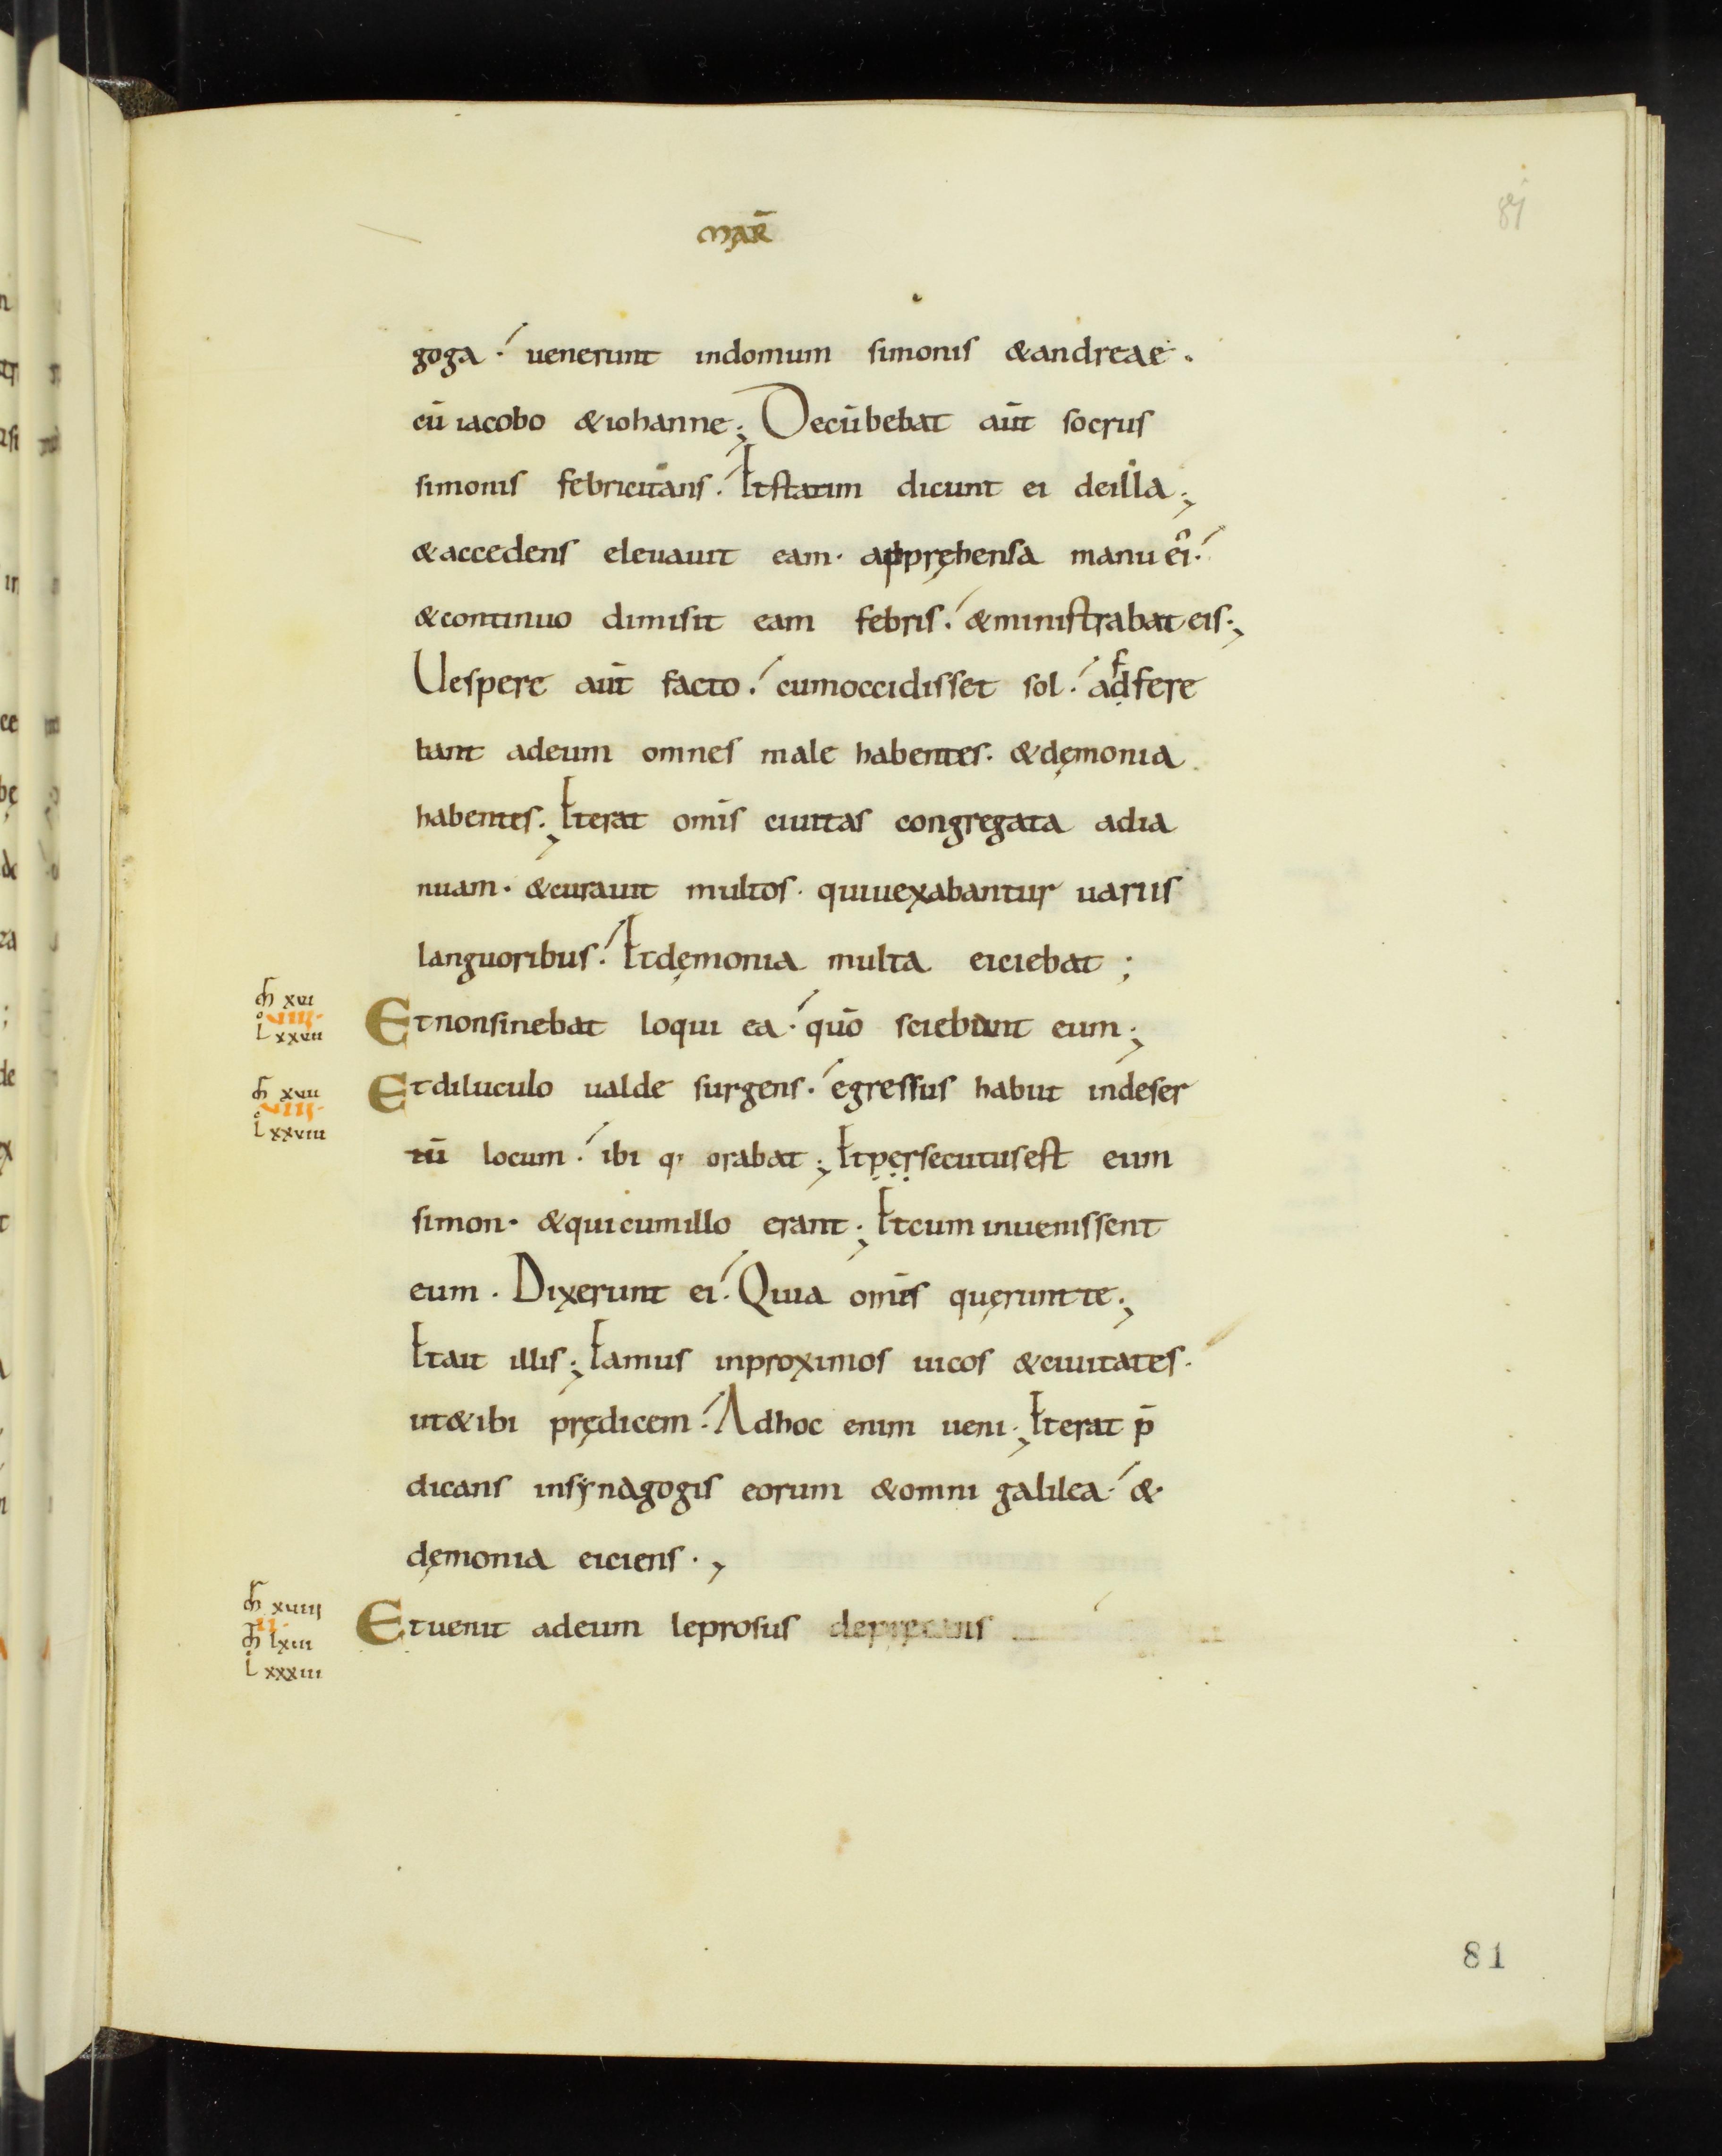 MAR̄
81
goga · uenerunt indomum simonis &andreae.
cū iacobo &iohanne; Decūbebat aūt socrus
simonis febricitans. Etstatim dicunt ei deilla;
&accedens eleuauit eam. appręhensa manu ei᾿.
&continuo dimisit eam febris. &ministrabat eis;
Uespere aūt facto. cumoccidisset sol. adfere
bant adeum omnes male habentes. &dęmonia
habentes; Eterat om̄is ciuitas congregata adia
nuam. &curauit multos. quiuexabantur uariis
languoribus. Etdęmonia multa eiciebat;
m̄ xvi
viiii
L xxvii
Etnonsinebat loqui ea. quō sciebant eum;
m̄ xvii
viiii
L xxviii
Etdiluculo ualde surgens. egressus habiit indeser
tū locum. ibi q; orabat; Etpersecutusest eum
simon. &quicumillo erant; Etcum inuenissent
eum. Dixerunt ei. Quia om̄es quęruntte;
Etait illis; Eamus inproximos uicos &ciuitates.
ut&ibi prędicem. Adhoc enim ueni; Eterat p̄
dicans insẏnagogis eorum &omni galilea. &
dęmonia eiciens.,
m̄ xviiii
ii
m̄ lxiii
L xxxiii
Etuenit adeum leprosus depręcans
81